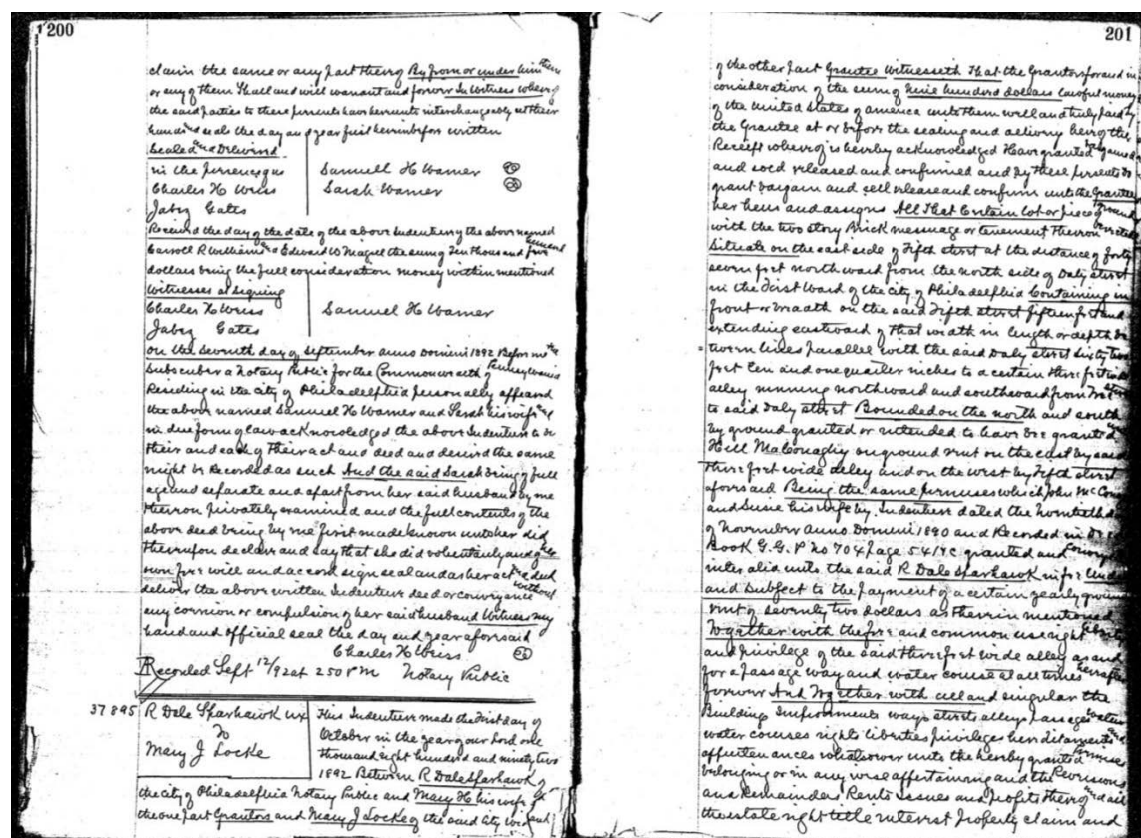 200
claim the same or any part thereof By from or under him them
or any of them Shall and will warrant and forever In Witness whereof
the said parties to these presents have hereunto interchangeably set their
hands and seals the day and year first hereinbefore written
Sealed and Delivered
in the presence of us
Samuel H Warner
Charles H Weiss
Sarah Warner
Jabez Gates
Received the day of the date of the above Indenture of the above named
Carroll R Williams and Edward W Magill the sum of Ten thousand five hundred
dollars being the full consideration money within mentioned
Witnesses at signing
Charles H Weiss
Samuel H Warner
Jabez Gates
On the seventh day of September anno Domini 1892 Before me the
Subscriber a Notary Public for the Commonwealth of Pennsylvania
Residing in the city of Philadelphia personally appeared
the above named Samuel H Warner and Sarah his wife and
in due form of law acknowledged the above Indenture to be
their and each of their act and deed and desired the same
might be Recorded as such And the said Sarah being of full
age and separate and apart from her said husband by me
thereon privately examined and the full contents of the
above deed being by me first made known unto her did
thereupon declare and say that she did voluntarily and of her
own free will and accord sign seal and as her act and deed
deliver the above written Indenture deed or conveyance without
any coercion or compulsion of her said husband Witness my
hand and official seal the day and year aforesaid
Charles H Weiss
Recorded Sept 12/92 at 2 50 PM Notary Public
37895 R Dale Sparhawk ux
to
Mary J Locke
This Indenture made the First day of
October in the year of our Lord one
thousand eight hundred and ninety two
1892 Between R Dale Sparhawk of
the city of Philadelphia Notary Public and Mary H his wife of
the one part Grantors and Mary J Locke of the said City
201
of the other part Grantee Witnesseth That the Grantors for and in
consideration of the sum of Nine hundred dollars lawful money
of the United States of America unto them well and truly paid by
the Grantee at or before the sealing and delivery hereof the
Receipt whereof is hereby acknowledged Have granted bargained
and sold released and confirmed and by these presents Do
grant bargain and sell release and confirm unto the Grantee
her heirs and assigns All That Certain lot or piece of ground
with the two story Brick message or tenement thereon erected
Situate on the east side of Fifth street at the distance of forty
seven feet northward from the north side of Daly street
in the First Ward of the city of Philadelphia Containing in
front or breadth on the said Fifth street fifteen feet and
extending eastward of that width in length or depth be
tween lines parallel with the said Daly street sixty two
feet ten and one quarter inches to a certain three feet wide
alley running northward and southward from
to said Daly street Bounded on the north and south
by ground granted or intended to have be granted
Hill on ground rent on the east by said
three feet wide alley and on the west by Fifth street
aforesaid Being the same premises which John
and Susie his wife by Indenture dated the
of November anno Domini 1890 and Recorded in Deed
Book G.G.P No 704 page 541 &c granted and conveyed
inter alia unto the said R Dale Sparhawk in fee Under
and Subject to the payment of a certain yearly ground
rent of seventy two dollars as therein mentioned
Together with the free and common use right liberty
and privilege of the said three feet wide alley as and
for a passage way and water course at all times hereafter
forever And Together with all and singular the
Building Improvements ways streets alleys passages waters
water courses rights liberties privileges hereditaments and
appurtenances whatsoever unto the hereby granted premises
belonging or in any wise appertaining and the Reversions
and Remainders Rents issues and profits thereof and all
the estate right title interest property claim and